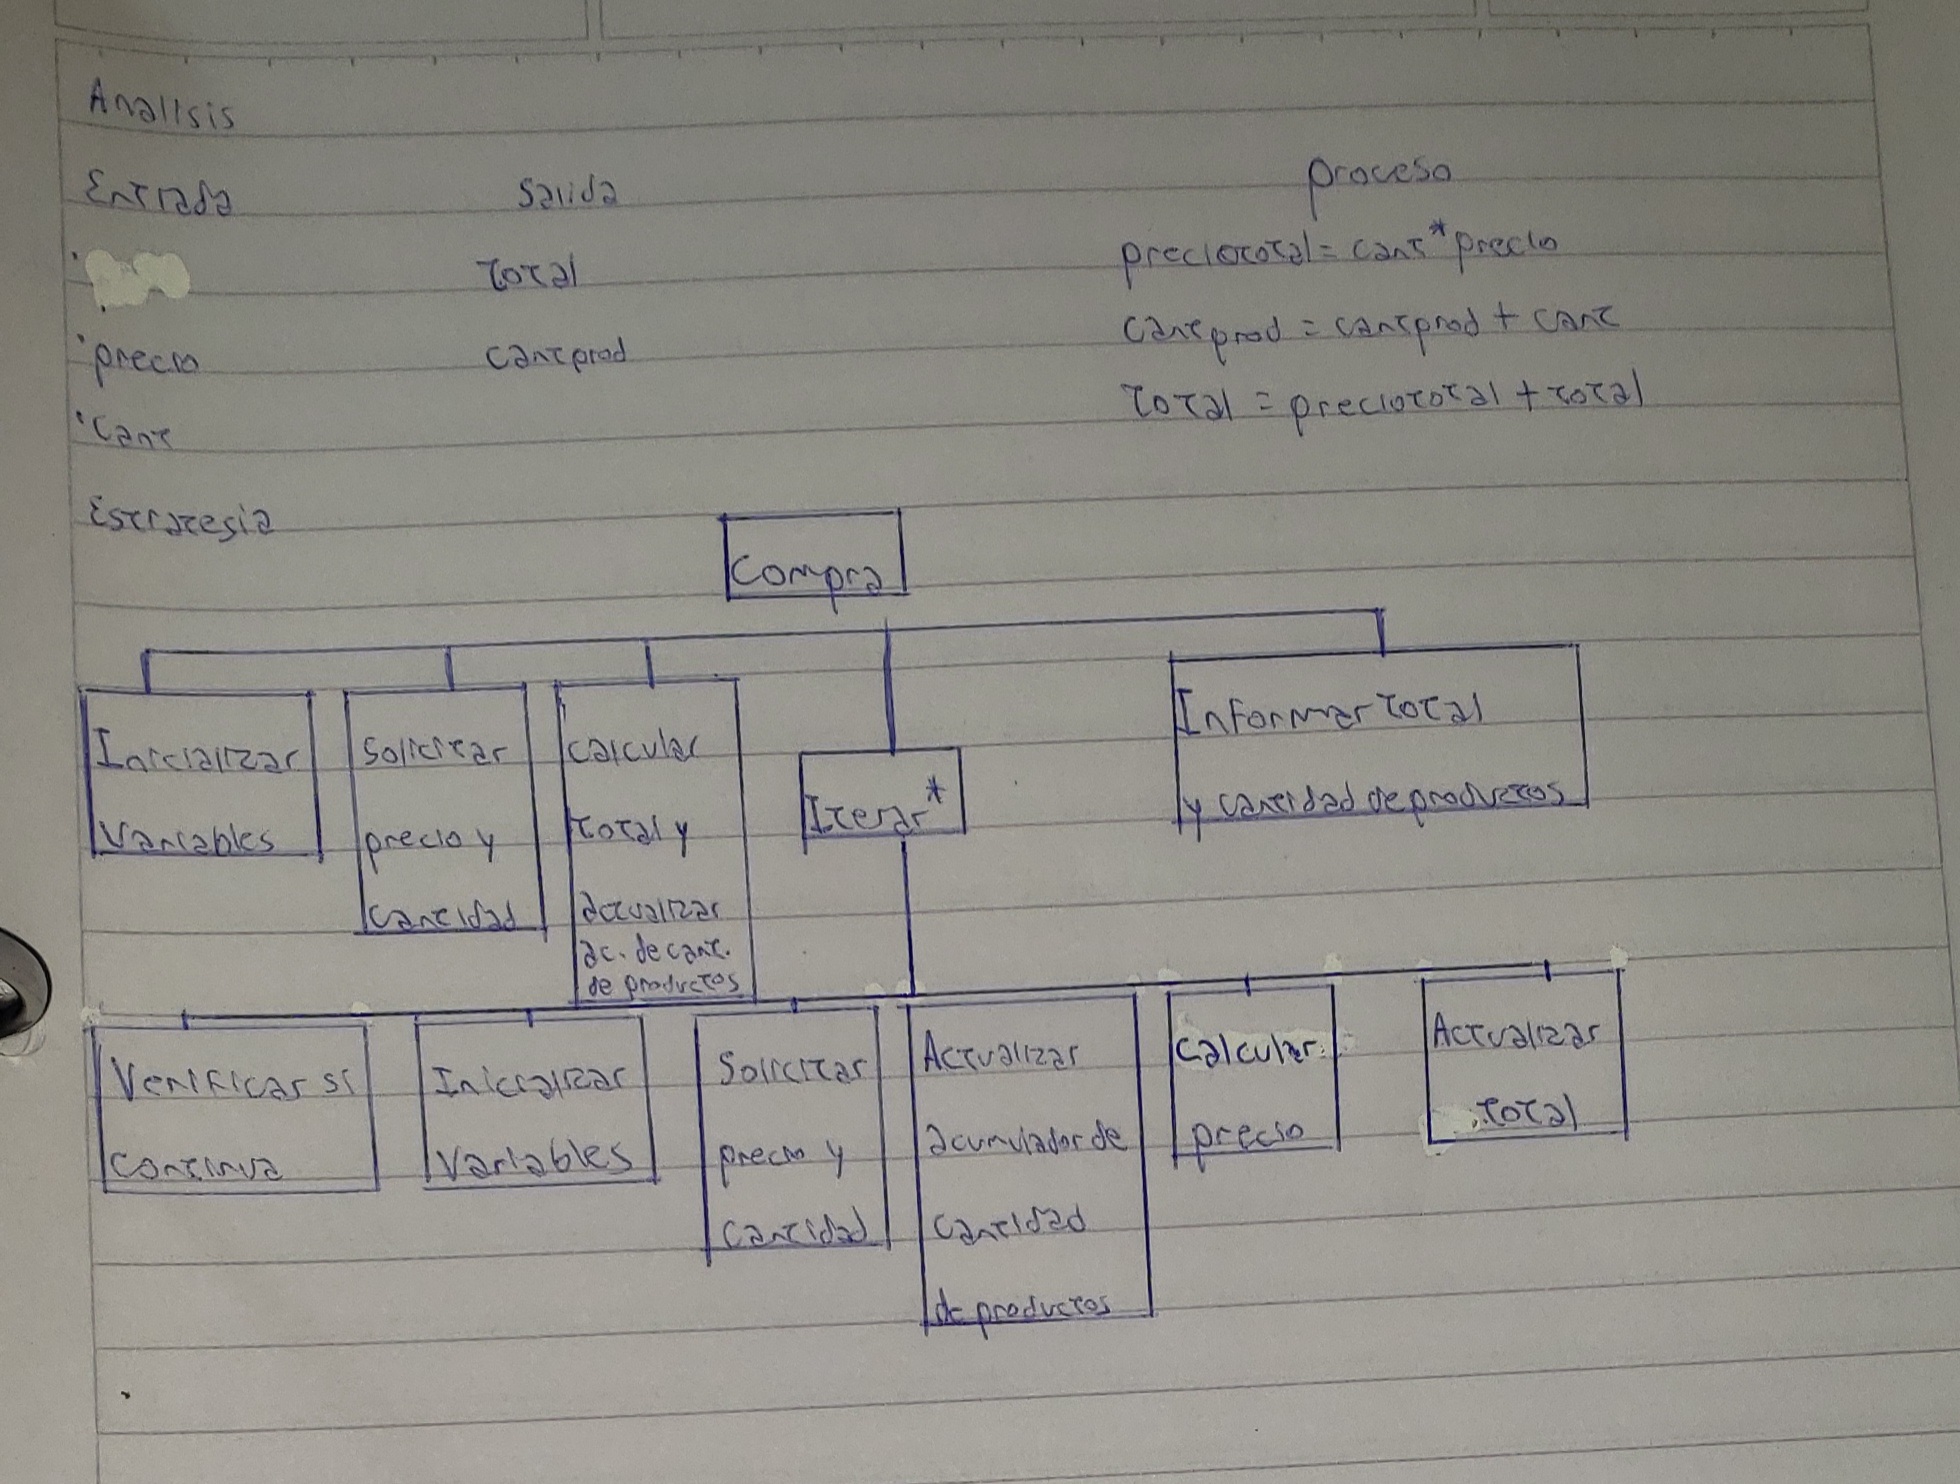 Analisis
Entrada Salida proceso
Total preciototal = cant * precio
precio cantprod cantprod = cantprod + cant
cant Total = preciototal + total
Estrategia
Compra
Inicializar
variables
Solicitar
precio y
cantidad
calcular
total y
actualizar
ac. de cant.
de productos
Iterar *
Informar total
y cantidad de productos
Verificar si
continua
Inicializar
variables
Solicitar
precio y
cantidad
Actualizar
acumulador de
cantidad
de productos
calcular
precio
Actualizar
total